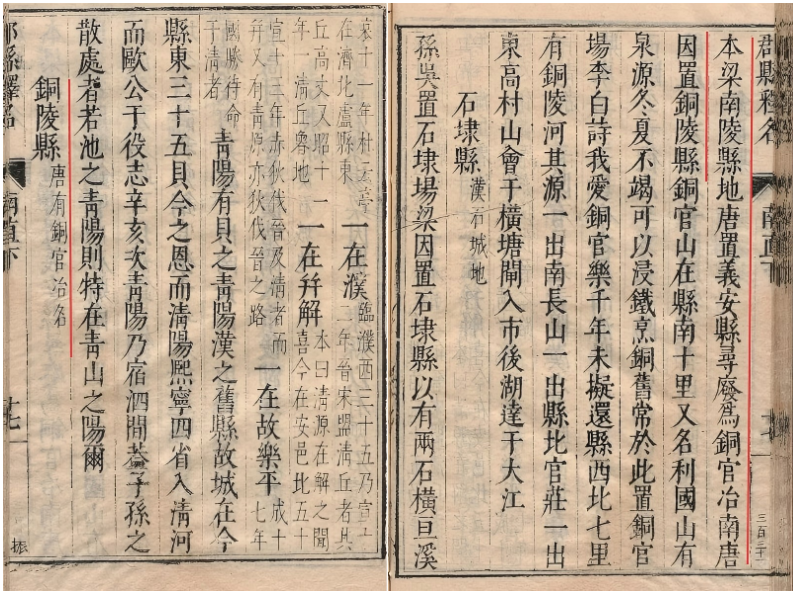 年杜
在濟北盧縣東
一在濮
臨濮西三十五乃宣十
二年晉宋盟清丘者其
丘高丈又昭十一
年一清丘魯地
一在幷解
本曰清源在解之聞
喜今在安邑北五十
宣十三年赤狄伐晉及清者而
幷又有青原亦狄伐晉之路
一在故樂平
成十
七年
國勝待命
于清者
青陽有貝之青陽漢之舊縣故城在今
縣東三十五貝今之恩而清陽熙寧四省入清河
而歐公于役志辛亥次青陽乃宿泗間葢子孫之
散處者若池之青陽則特在青山之陽爾
銅陵縣
唐有銅官冶名
郡縣釋名
南直下
十七
振
郡縣釋名
南直下
十七
三百二十
本梁南陵縣地唐置義安縣尋廢爲銅官冶南唐
因置銅陵縣銅官山在縣南十里又名利國山有
泉源冬夏不竭可以浸鐵烹銅舊常於此置銅官
場李白詩我愛銅官樂千年未擬還縣西北七里
有銅陵河其源一出南長山一出縣北官莊一出
東高村山會于橫塘閘入市後湖達于大江
石埭縣
漢石城地
孫吳置石埭場梁因置石埭縣以有兩石橫亘溪